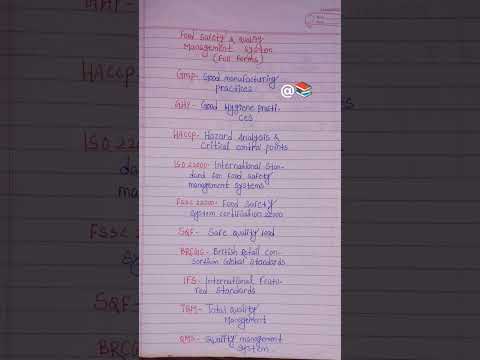 Food Safety & Quality
Management System
(Full Forms)
GMP- Good manufacturing
practices
@
GHP- Good Hygiene Practi-
ces
HACCP- Hazard Analysis &
Critical control points
ISO 22000- International Stan-
dard for food safety
management systems
FSSC 22000- Food Safety
system certification 22000
SQF- Safe quality food
BRCGS- British Retail con-
sortium Global Standards
IFS- International Featu-
red Standards
TQM- Total Quality
Management
QMS- Quality management
System